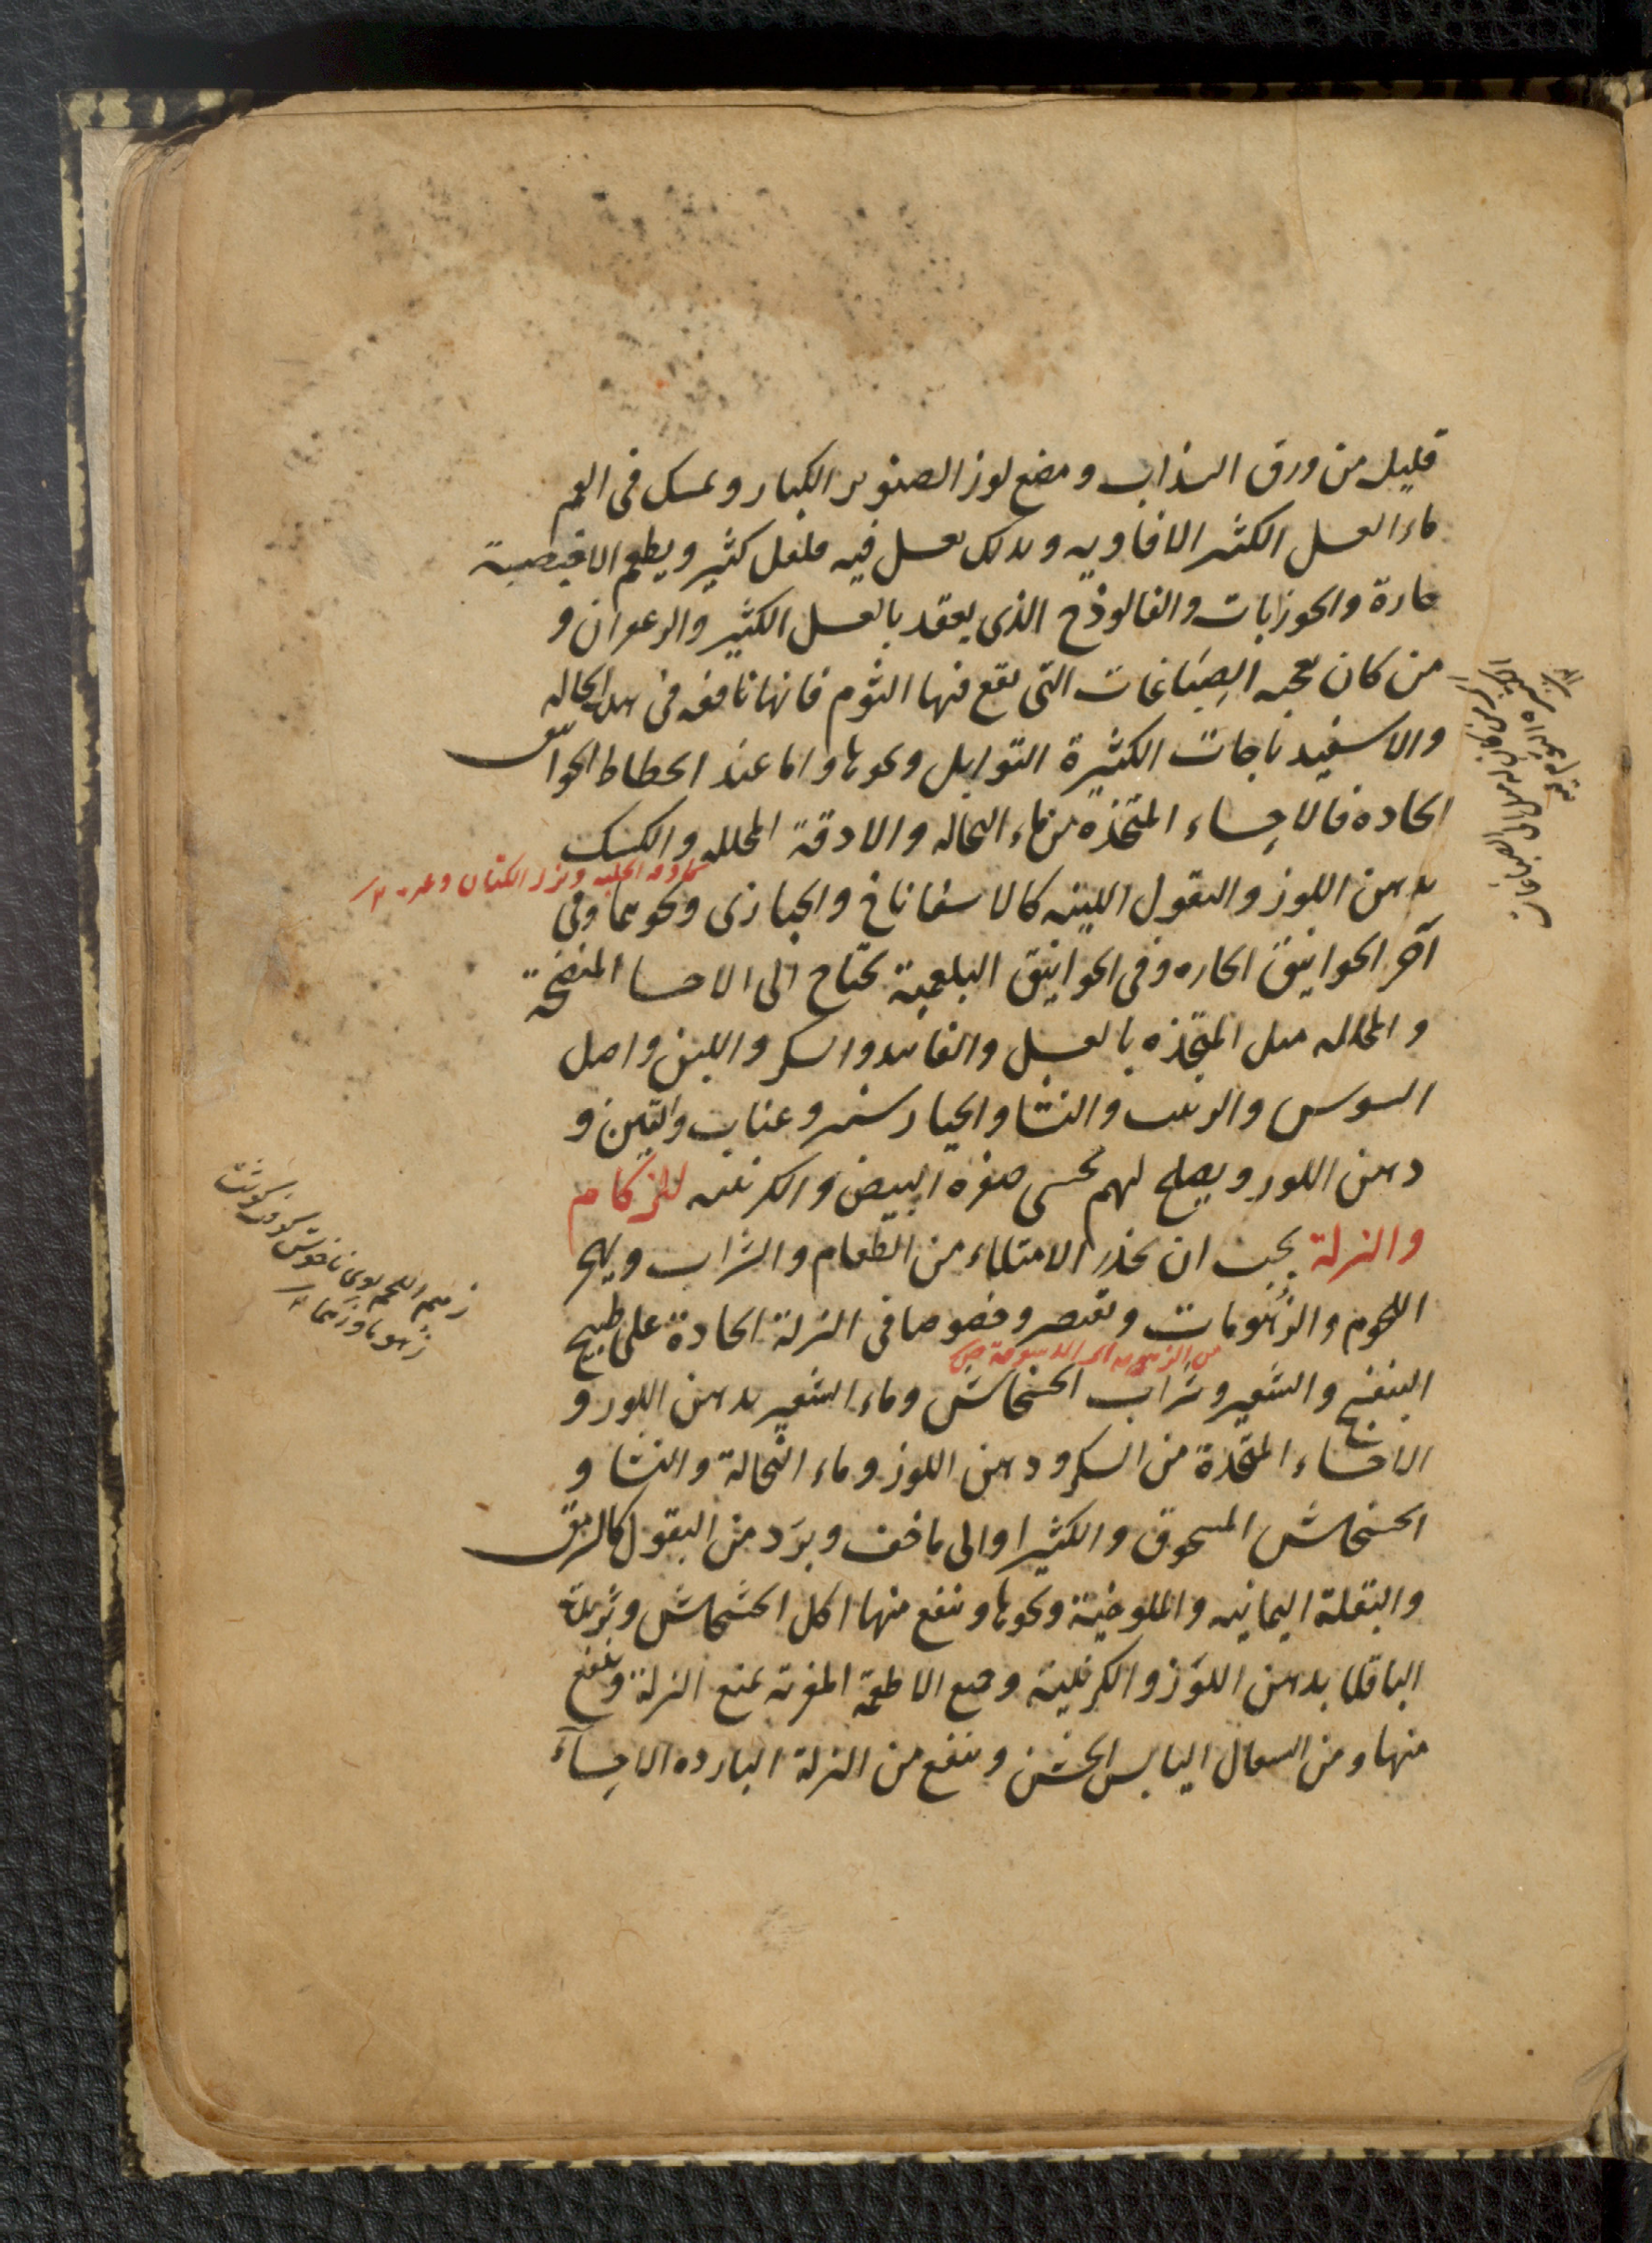 قليل من ورق السذاب ومضغ لوز الصنوبر الكبار ويمسك فى الفم
ماء العسل الكثير الافاويه وبدلك بعسل فيه فلفل كثير ويطعم الاخبصة
حارة والجوزابات والفالوذج الذى يعقد بالعسل الكثير والزعفران و
من كان يحبه الصِبَاغات التى يقع فيها الثوم فانها نافعه فى هذه الحاله
والاسفيدباجات الكثيرة التوابل ونحوها واما عند انحطاط الخوانيق
الحاده فالاحِساء المتّخذه من ماء النخاله والادقة المحلله والكشك
بدهن اللوز والبقول اللينه كالاسفاناخ والخبازى ونحوهما وفى
آخر الخوانيق الحاره وفى الخوانيق البلغمية يحتاج الى الاحسا المنضجة
والمحلله مثل المتّخذه بالعسل والفانيد والسكر واللبن واصل
السوس والزبيب والنشا والخيارشنبر وعناب والتين و
دهن اللوز ويصلح لهم تحسى صفرة البيض والكرنبيه للزكام
والنزلة يجب ان يحذر الامتلاء من الطعام والشراب ويهجر
اللحوم والزُهُومات ويقتصر وخصوصا فى النزلة الحادة على طبيخ
البنفسج والشعير وشراب الخشخاش وماء الشعير بدهن اللوز و
الاحساء المتّخذة من السكر ودهن اللوز وماء النّخالة والنشا و
الخشخاش المسحوق والكثيرا والى ما خف وبرَد من البقول كالسرمق
والبقلة اليمانيه والملوخية ونحوها وينفع منها اكل الخشخاش وشربه
الباقلا بدهن اللوَز والكرنبية وجميع الاطعمة المغرية تمنع النزلة وينفع
منها ومن السعال اليابس الخشن وينفع من النزلة البارده الاحِسآء
وبزر الكتان
زهم اللحم بوى ناخوش